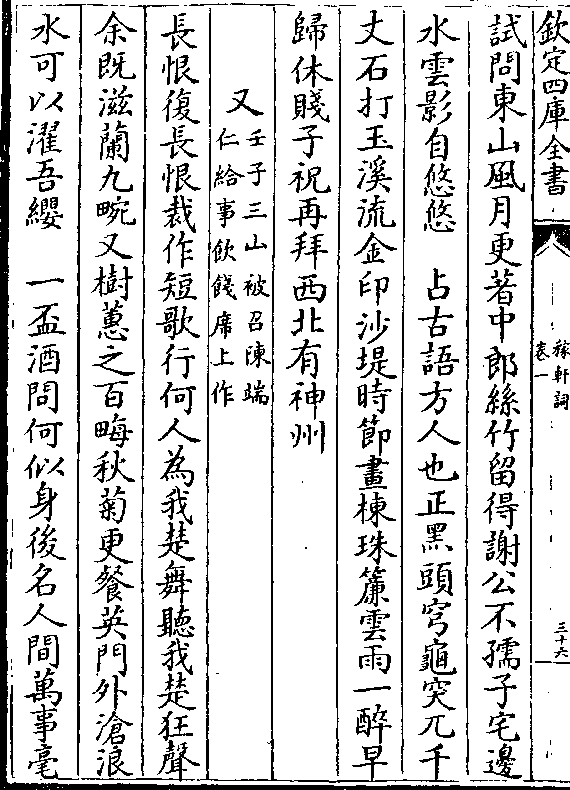 欽定四庫全書
稼軒詞
卷一
三十六
試問東山風月更著中郎絲竹留得謝公不孺子宅邊
水雲影自悠悠　占古語方人也正黑頭穹龜突兀千
丈石打玉溪流金印沙堤時節畫棟珠簾雲雨一醉早
歸休賤子祝再拜西北有神州
又壬子三山被召陳端
仁給事飲餞席上作
長恨復長恨裁作短歌行何人為我楚舞聽我楚狂聲
余既滋蘭九畹又樹蕙之百畮秋菊更餐英門外滄浪
水可以濯吾纓　一盃酒問何似身後名人間萬事毫